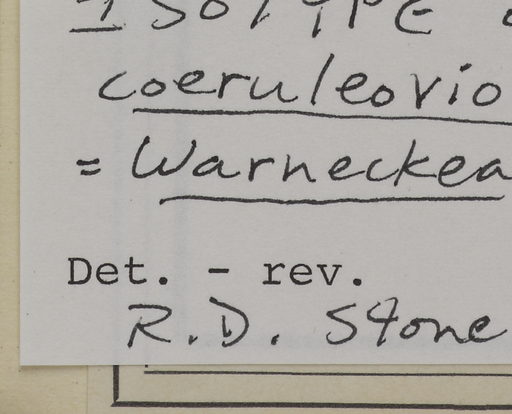 Isotype
coeruleovio
= Warneckea
Det. - rev.
R.D. Stone